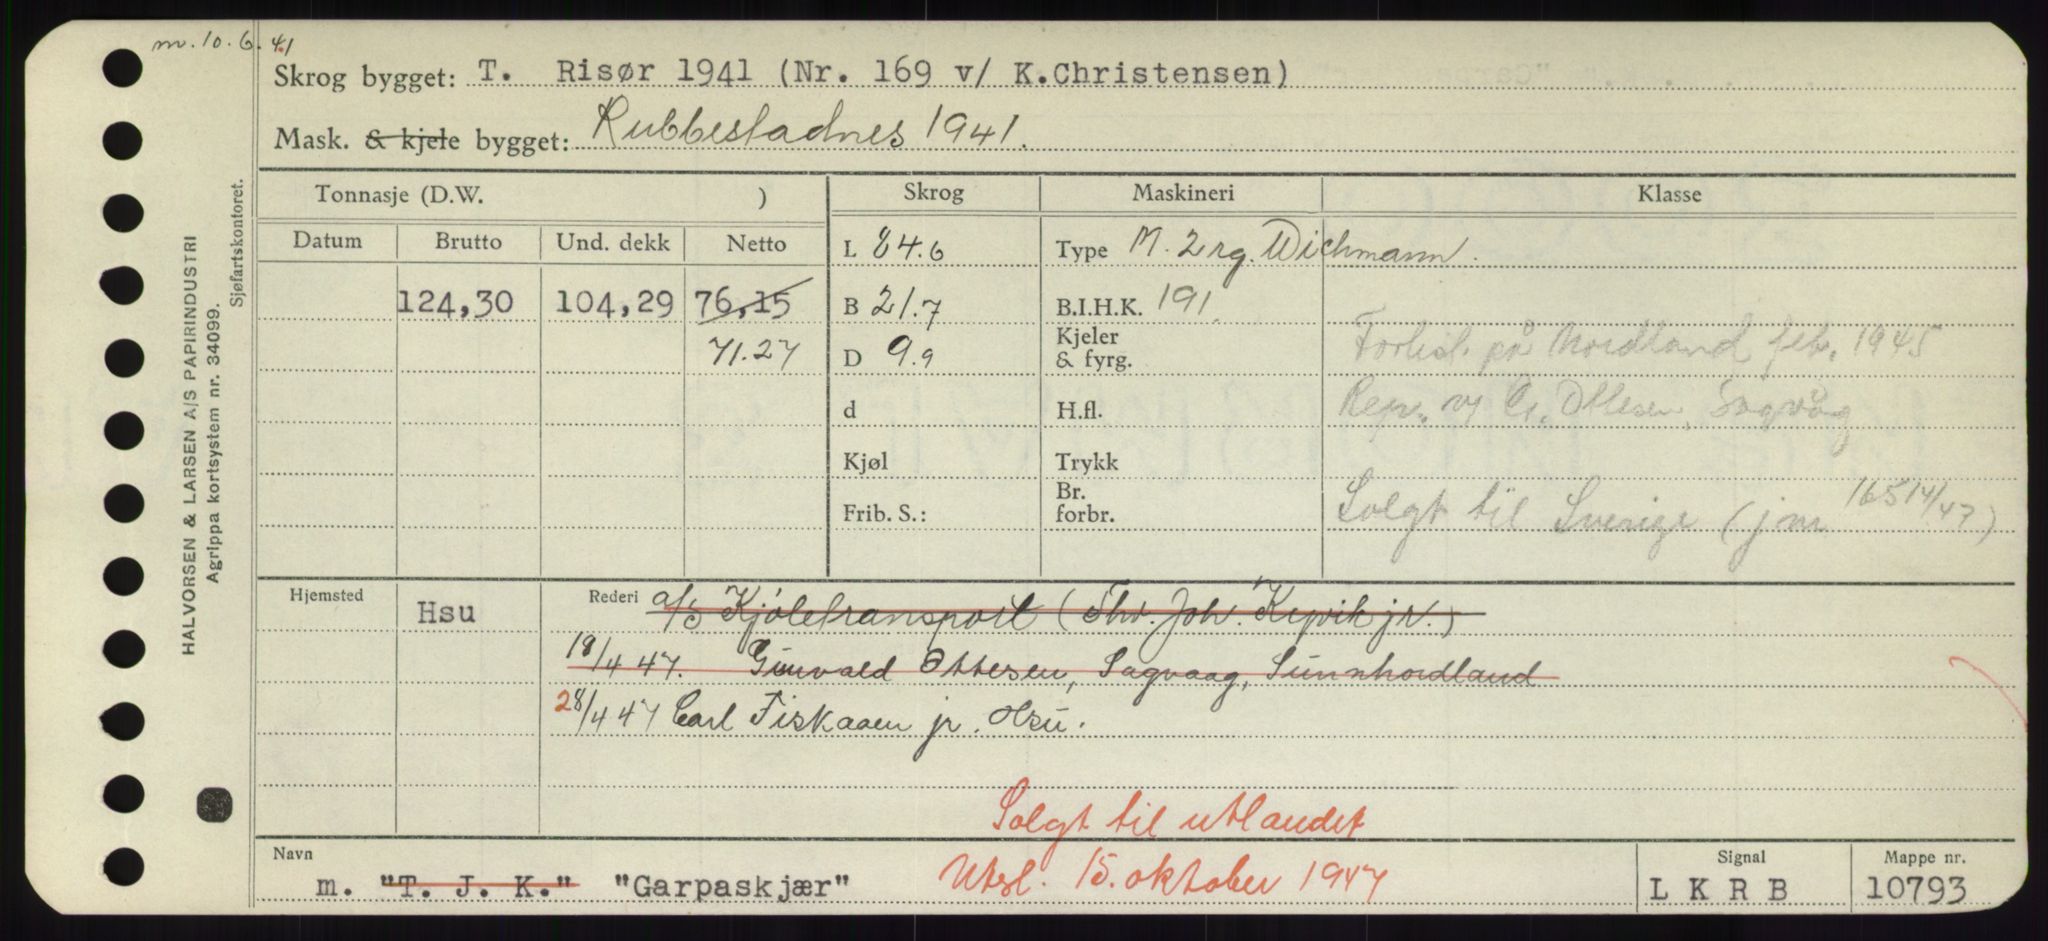 m. 10.6.41
Skrog bygget: T. Risør 1941 (Nr. 169 v/ K.Christensen)
Mask. & kjele bygget: Rubbestadnes 1941.
HALVORSEN & LARSEN A/S PAPIRINDUSTRI
Agrippa kortsystem nr. 34099.
Sjøfartskontoret.
Tonnasje (D.W. ) Skrog Maskineri Klasse
Datum Brutto Und. dekk Netto
L 84.6 Type M. 2 rg. Wichmann.
124,30 104,29 76,15 B 21.7 B.I.H.K. 191.
71.27 D 9.9 Kjeler & fyrg. Forlist på Nordland feb. 1945
d H.fl. Rep. v/ G. Ottesen, Sagvåg
Kjøl Trykk
Frib. S.: Br. forbr. Solgt til Sverige (jm 165 14/47)
Hjemsted Hsu Rederi a/s Kjøletransport (Thv. Joh. Kyvik jr.)
18/4 47. Gunvald Ottesen, Sagvaag, Sunnhordland
28/4 47 Carl Fiskaaen jr. Hsu.
Solgt til utlandet
Navn Signal Mappe nr.
m. "T. J. K." "Garpaskjær" Utsl. 15. oktober 1947 LKRB 10793